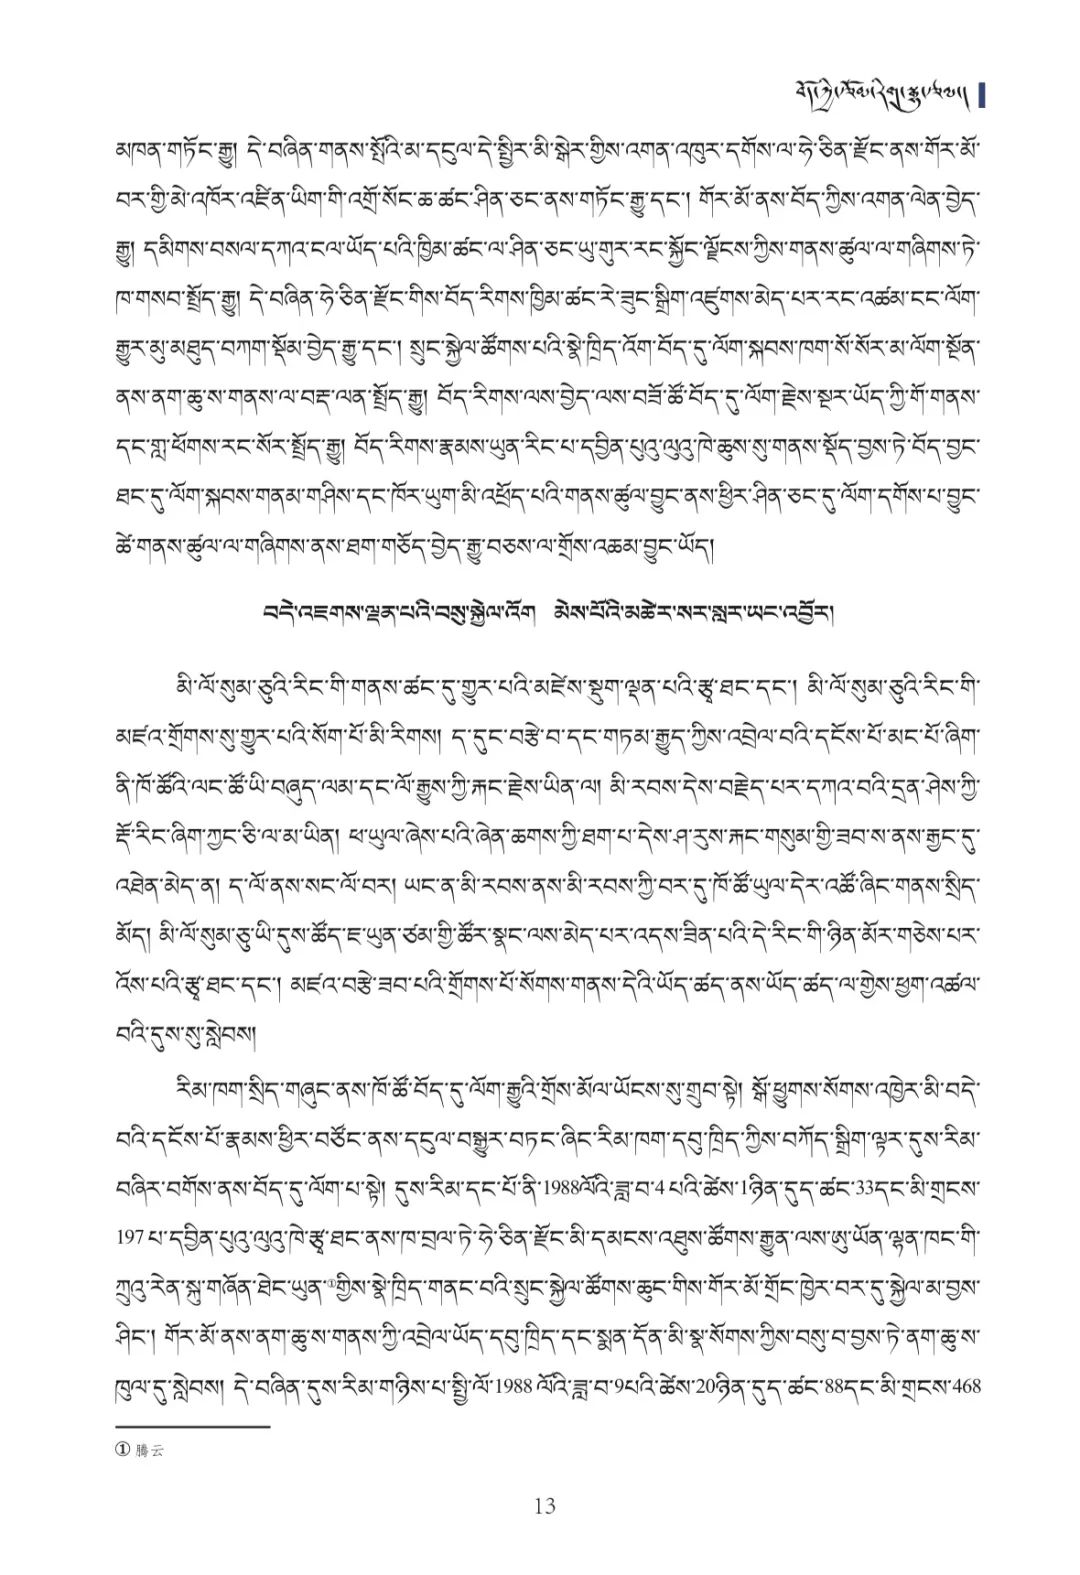 མཁན་གཏོང་རྒྱུ། དེ་བཞིན་གནས་སྤོའི་མ་དངུལ་དེ་སྤྱིར་མི་སྒེར་གྱིས་འགན་འཁུར་དགོས་ལ་ཧེ་ཅིན་རྫོང་ནས་གོར་མོ་
བར་གྱི་མེ་འཁོར་འཛིན་ཡིག་གི་འགྲོ་སོང་ཆ་ཚང་ཤིན་ཅང་ནས་གཏོང་རྒྱུ་དང་། གོར་མོ་ནས་བོད་ཀྱིས་འགན་ལེན་བྱེད་
རྒྱུ། དམིགས་བསལ་དཀའ་ངལ་ཡོད་པའི་ཁྱིམ་ཚང་ལ་ཤིན་ཅང་ཡུ་གུར་རང་སྐྱོང་ལྗོངས་ཀྱིས་གནས་ཚུལ་ལ་གཞིགས་ཏེ་
ཁ་གསབ་སྤྲོད་རྒྱུ། དེ་བཞིན་ཧེ་ཅིན་རྫོང་གིས་བོད་རིགས་ཁྱིམ་ཚང་རེ་ཟུང་སྒྲིག་འཛུགས་མེད་པར་རང་འཚམ་ངང་ལོག་
རྒྱུར་མུ་མཐུད་བཀག་སྡོམ་བྱེད་རྒྱུ་དང་། སྲུང་སྐྱེལ་ཚོགས་པའི་སྣེ་ཁྲིད་འོག་བོད་དུ་ལོག་སྐབས་ཁག་སོ་སོར་མ་ལོག་སྔོན་
ནས་ནག་ཆུ་ས་གནས་ལ་བརྡ་ལན་སྤྲོད་རྒྱུ། བོད་རིགས་ལས་བྱེད་ལས་བཟོ་ཚོ་བོད་དུ་ལོག་རྗེས་སྔར་ཡོད་ཀྱི་གོ་གནས་
དང་གླ་ཕོགས་རང་སོར་སྤྲོད་རྒྱུ། བོད་རིགས་རྣམས་ཡུན་རིང་པ་དབྱིན་པུའུ་ལུའུ་ཁེ་ཆུས་སུ་གནས་སྡོད་བྱས་ཏེ་བོད་བྱང་
ཐང་དུ་ལོག་སྐབས་གནམ་གཤིས་དང་ཁོར་ཡུག་མི་འཕྲོད་པའི་གནས་ཚུལ་བྱུང་ནས་ཕྱིར་ཤིན་ཅང་དུ་ལོག་དགོས་པ་བྱུང་
ཚེ་གནས་ཚུལ་ལ་གཞིགས་ནས་ཐག་གཅོད་བྱེད་རྒྱུ་བཅས་ལ་གྲོས་འཆམ་བྱུང་ཡོད།
བདེ་འཇགས་ལྡན་པའི་བསུ་སྐྱེལ་འོག མེས་པོའི་མཚེར་སར་སླར་ཡང་འབྱོར།
མི་ལོ་སུམ་ཅུའི་རིང་གི་གནས་ཚང་དུ་གྱུར་པའི་མཛེས་སྡུག་ལྡན་པའི་རྩྭ་ཐང་དང་། མི་ལོ་སུམ་ཅུའི་རིང་གི་
མཛའ་གྲོགས་སུ་གྱུར་པའི་སོག་པོ་མི་རིགས། ད་དུང་བརྩེ་བ་དང་གཏམ་རྒྱུད་ཀྱིས་འབྲེལ་བའི་དངོས་པོ་མང་པོ་ཞིག་
ནི་ཁོ་ཚོའི་ལང་ཚོ་ཡི་བཞུད་ལམ་དང་ལོ་རྒྱུས་ཀྱི་རྐང་རྗེས་ཡིན་ལ། མི་རབས་དེས་བརྗེད་པར་དཀའ་བའི་དྲན་ཤེས་ཀྱི་
རྡོ་རིང་ཞིག་ཀྱང་ཅི་ལ་མ་ཡིན། ཕ་ཡུལ་ཞེས་པའི་ཞེན་ཆགས་ཀྱི་ཐག་པ་དེས་ཤ་རུས་རྐང་གསུམ་གྱི་ཟབ་ས་ནས་རྒྱང་དུ་
འཐེན་མེད་ན། ད་ལོ་ནས་སང་ལོ་བར། ཡང་ན་མི་རབས་ནས་མི་རབས་ཀྱི་བར་དུ་ཁོ་ཚོ་ཡུལ་དེར་འཚོ་ཞིང་གནས་སྲིད་
མོད། མི་ལོ་སུམ་ཅུ་ཡི་དུས་ཚོད་ཇ་ཡུན་ཙམ་གྱི་ཚོར་སྣང་ལས་མེད་པར་འདས་ཟིན་པའི་དེ་རིང་གི་ཉིན་མོར་གཅེས་པར་
འོས་པའི་རྩྭ་ཐང་དང་། མཛའ་བརྩེ་ཟབ་པའི་གྲོགས་པོ་སོགས་གནས་དེའི་ཡོད་ཚད་ནས་ཡོད་ཚད་ལ་གྱེས་ཕྱག་འཚལ་
བའི་དུས་སུ་སླེབས།
རིམ་ཁག་སྲིད་གཞུང་ནས་ཁོ་ཚོ་བོད་དུ་ལོག་རྒྱུའི་གྲོས་མོལ་ཡོངས་སུ་གྲུབ་སྟེ། སྒོ་ཕྱུགས་སོགས་འཁྱེར་མི་བདེ་
བའི་དངོས་པོ་རྣམས་ཕྱིར་བཙོང་ནས་དངུལ་བསྒྱུར་བཏང་ཞིང་རིམ་ཁག་དབུ་ཁྲིད་ཀྱིས་བཀོད་སྒྲིག་ལྟར་དུས་རིམ་
བཞིར་བགོས་ནས་བོད་དུ་ལོག་པ་སྟེ། དུས་རིམ་དང་པོ་ནི་1988ལོའི་ཟླ་བ་4པའི་ཚེས་1ཉིན་དུད་ཚང་33དང་མི་གྲངས་
197པ་དབྱིན་པུའུ་ལུའུ་ཁེ་རྩྭ་ཐང་ནས་ཁ་བྲལ་ཏེ་ཧེ་ཅིན་རྫོང་མི་དམངས་འཐུས་ཚོགས་རྒྱུན་ལས་ཨུ་ཡོན་ལྷན་ཁང་གི་
ཀྲུའུ་རེན་སྐུ་གཞོན་ཐེང་ཡུན་①གྱིས་སྣེ་ཁྲིད་གནང་བའི་སྲུང་སྐྱེལ་ཚོགས་ཆུང་གིས་གོར་མོ་གྲོང་ཁྱེར་བར་དུ་སྐྱེལ་མ་བྱས་
ཤིང་། གོར་མོ་ནས་ནག་ཆུ་ས་གནས་ཀྱི་འབྲེལ་ཡོད་དབུ་ཁྲིད་དང་སྨན་དོན་མི་སྣ་སོགས་ཀྱིས་བསུ་བ་བྱས་ཏེ་ནག་ཆུ་ས་
ཁུལ་དུ་སླེབས། དེ་བཞིན་དུས་རིམ་གཉིས་པ་སྤྱི་ལོ་1988ལོའི་ཟླ་བ་9པའི་ཚེས་20ཉིན་དུད་ཚང་88དང་མི་གྲངས་468
① 腾云
13